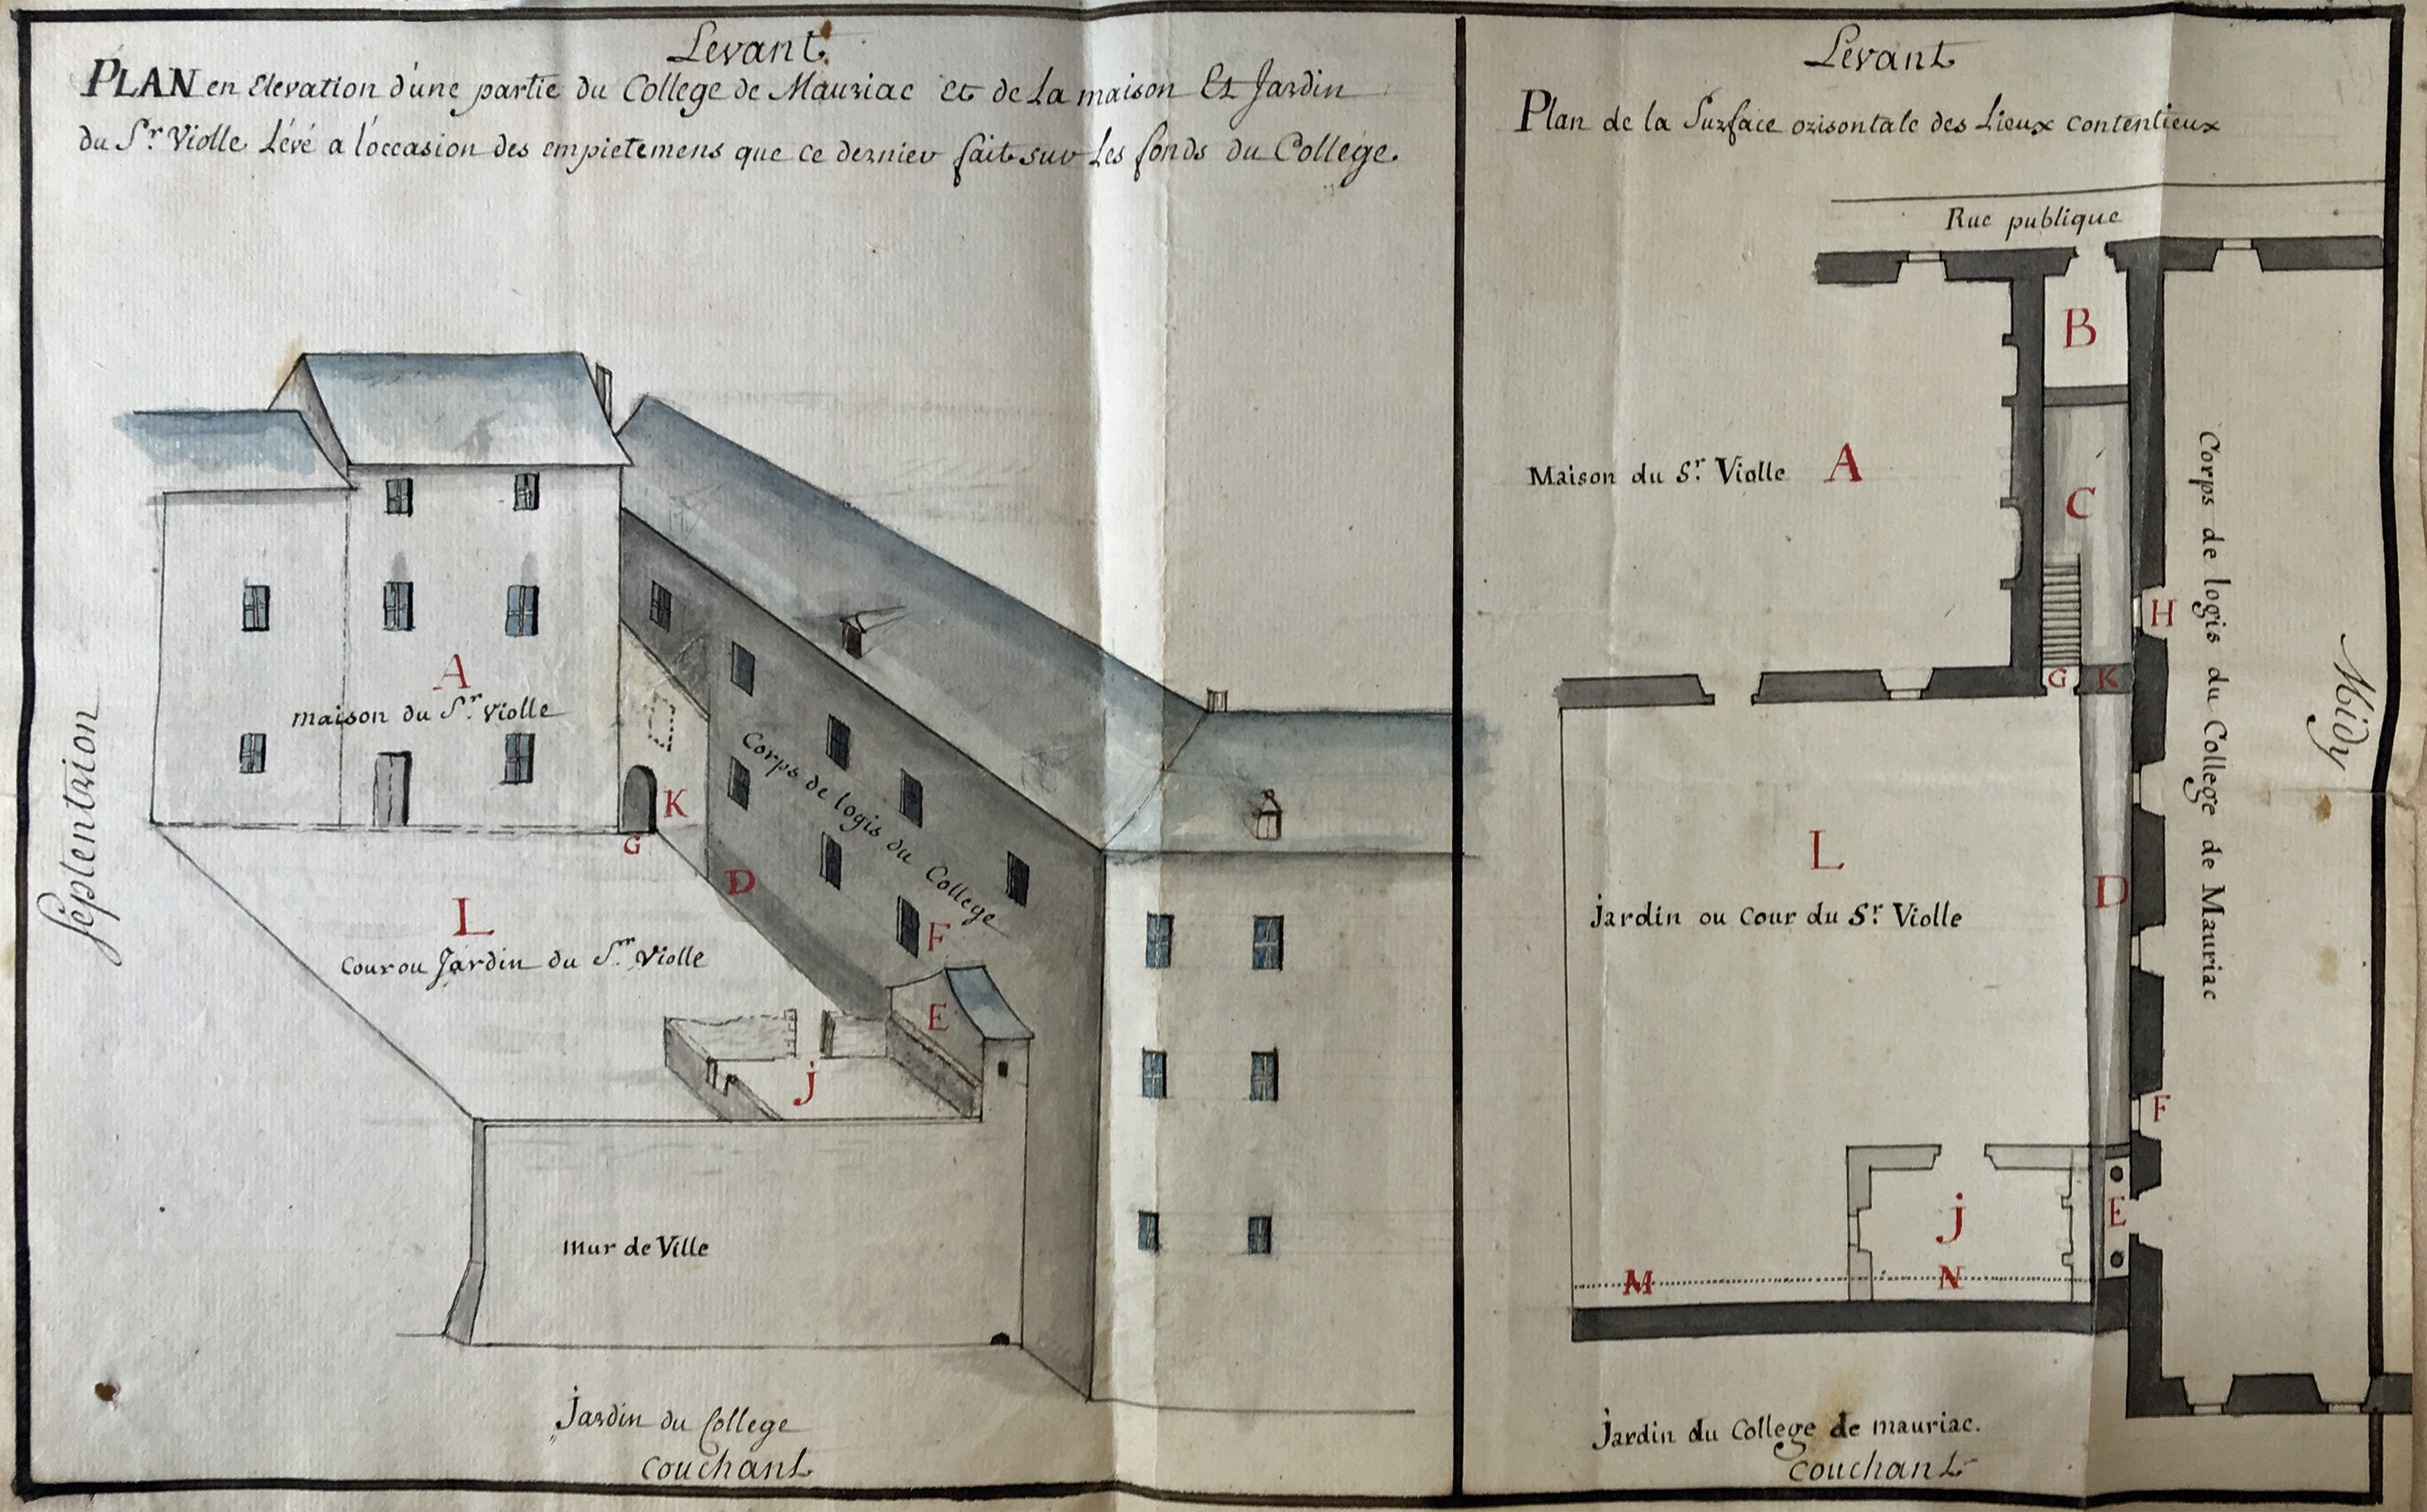 Levant
PLAN en Elevation d'une partie du College de Mauriac et de La maison Et Jardin
du Sr. Violle Lévé a l'occasion des empietemens que ce dernier fait sur Les fonds du College.
Septentrion
A
maison du Sr. Violle
K
G
D
Corps de logis du College
F
L
Cour ou Jardin du Sr. Violle
E
j
mur de Ville
Jardin du College
Couchant
Levant
Plan de la Surface orisontale des Lieux contentieux
Rue publique
B
Maison du Sr. Violle A
C
H
G K
Corps de logis du College de Mauriac
Midy
L
D
jardin ou Cour du Sr. Violle
F
j
E
M N
jardin du College de mauriac.
Couchant